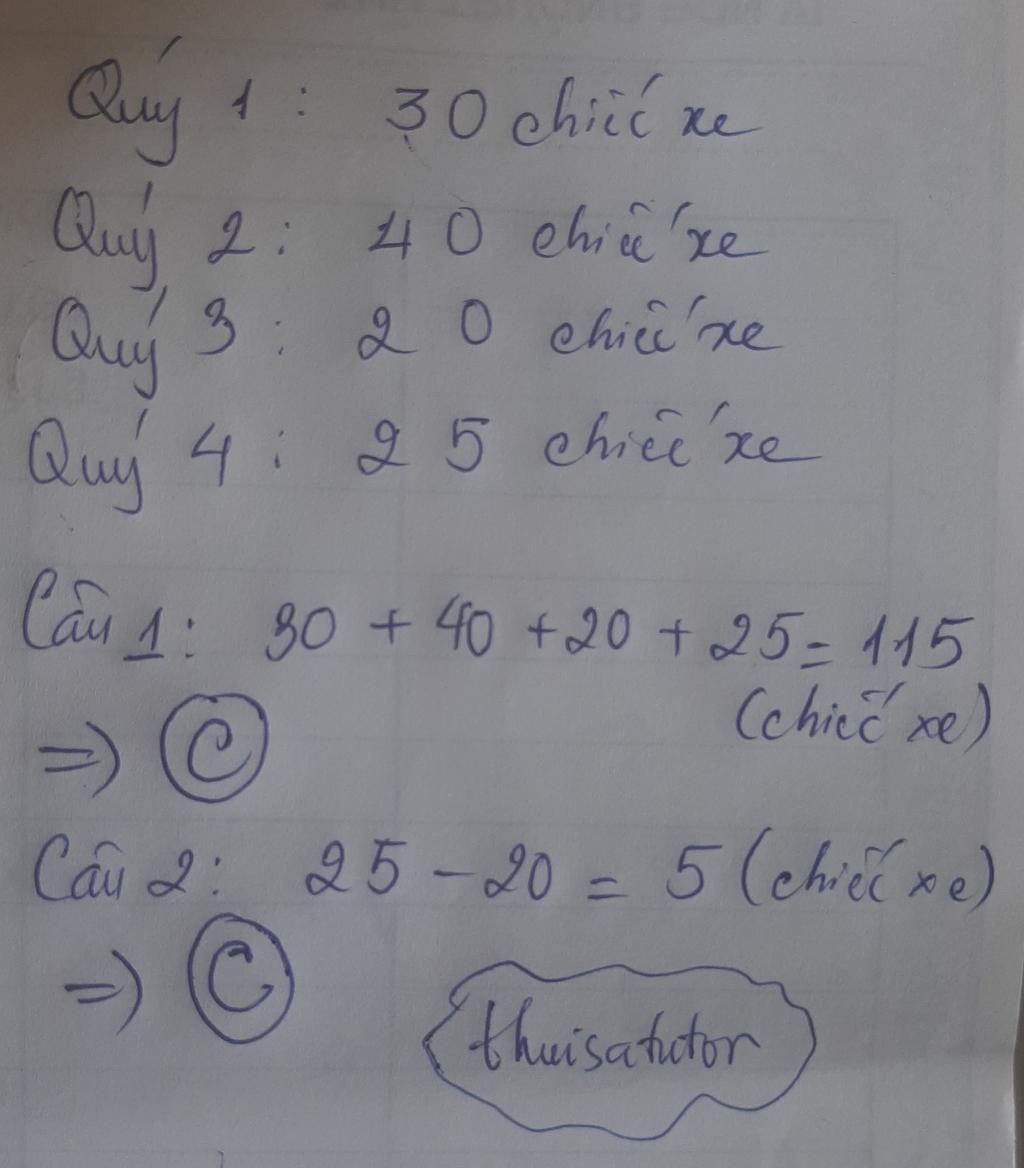 Quý 1 : 30 chiếc xe
Quý 2 : 40 chiếc xe
Quý 3 : 20 chiếc xe
Quý 4 : 25 chiếc xe
Câu 1 : 30 + 40 + 20 + 25 = 115
(chiếc xe)
=> C
Câu 2 : 25 - 20 = 5 (chiếc xe)
=> C
thuisatutor